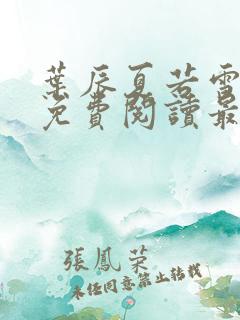 葉辰夏若雪
免費閱讀最
張鳳荣
未经同意禁止转载